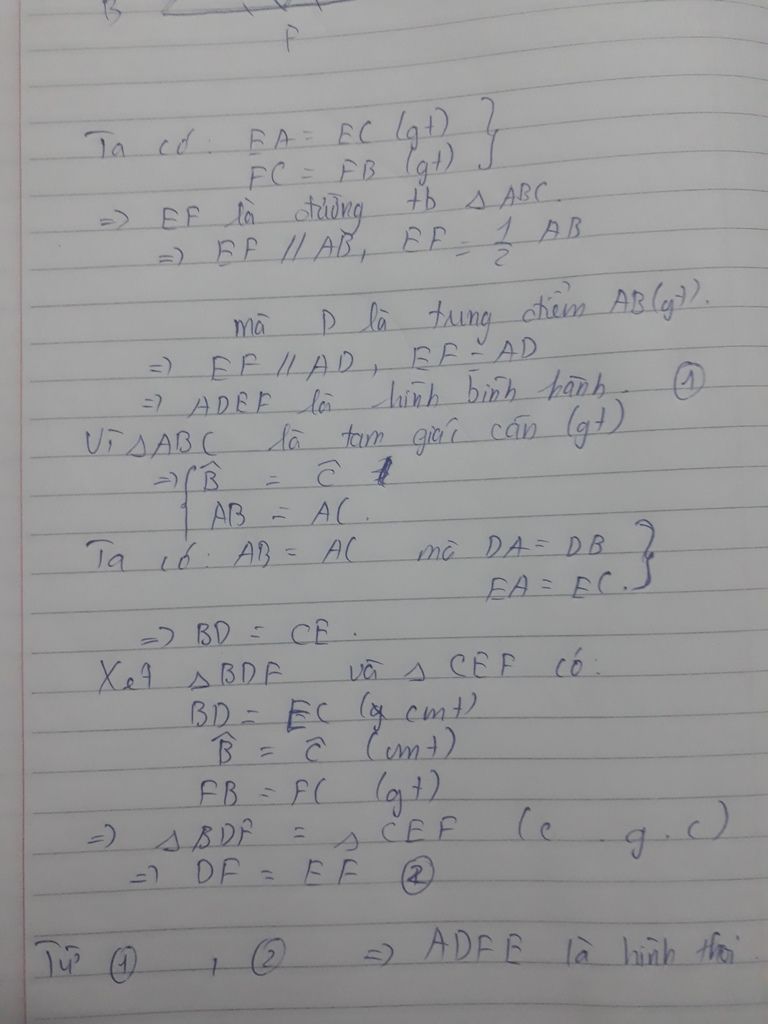 B
F
Ta có: EA = EC (gt)
FC = FB (gt)
=> EF là đường tb Δ ABC.
=> EF // AB, EF = 1/2 AB
mà D là trung điểm AB (gt).
=> EF // AD, EF = AD
=> ADEF là hình bình hành. ①
Vì Δ ABC là tam giác cân (gt)
=> { B̂ = Ĉ
AB = AC.
Ta có: AB = AC mà DA = DB
EA = EC.
=> BD = CE.
Xét Δ BDF và Δ CEF có:
BD = EC (cmt)
B̂ = Ĉ (cmt)
FB = FC (gt)
=> Δ BDF = Δ CEF (c . g . c)
=> DF = EF ②
Từ ① , ② => ADFE là hình thoi.